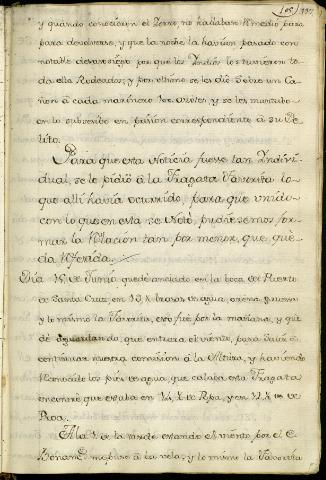 105 107
y quando conocieron el Yerro, no hallaban Remedio para
para devolverse, y que la noche la havian pasado con
notable desasosiego por que los Yndios los tuvieron to
da ella Rodeados; y por ultimo se les dio sobre un Ca
ñon à cada marinero azotes y se les mantubo
en lo subcesibo en prision correspondiente à su De
lito.
Para que esta Noticia fuese tan Yndivi
dual, se le pidiò à la Fragata Favorita lo
que alli havia ocurrido, para que unido
con lo que en esta se Notò, pudiesemos for
mar la Relacion tan por menor, que que
da Referida.
Dia 15 de Junio quedè anclado en la boca del Puerto
de Santa Cruz, en 13 brazas de agua, arena gruesa
y lo mismo la Favorita, esto fue por la mañana, y que
dè aguardando que entrara el viento, para salir à
continuar nuestra comision à la Altura, y haviendo
Reconocido los pies de agua, que calaba esta Fragata
encontrè que estaba en 14 de Popa, y en 12 de
Proa.
A la 1 de la tarde estando el viento por el
me puse à la vela, y lo mismo la Favorita